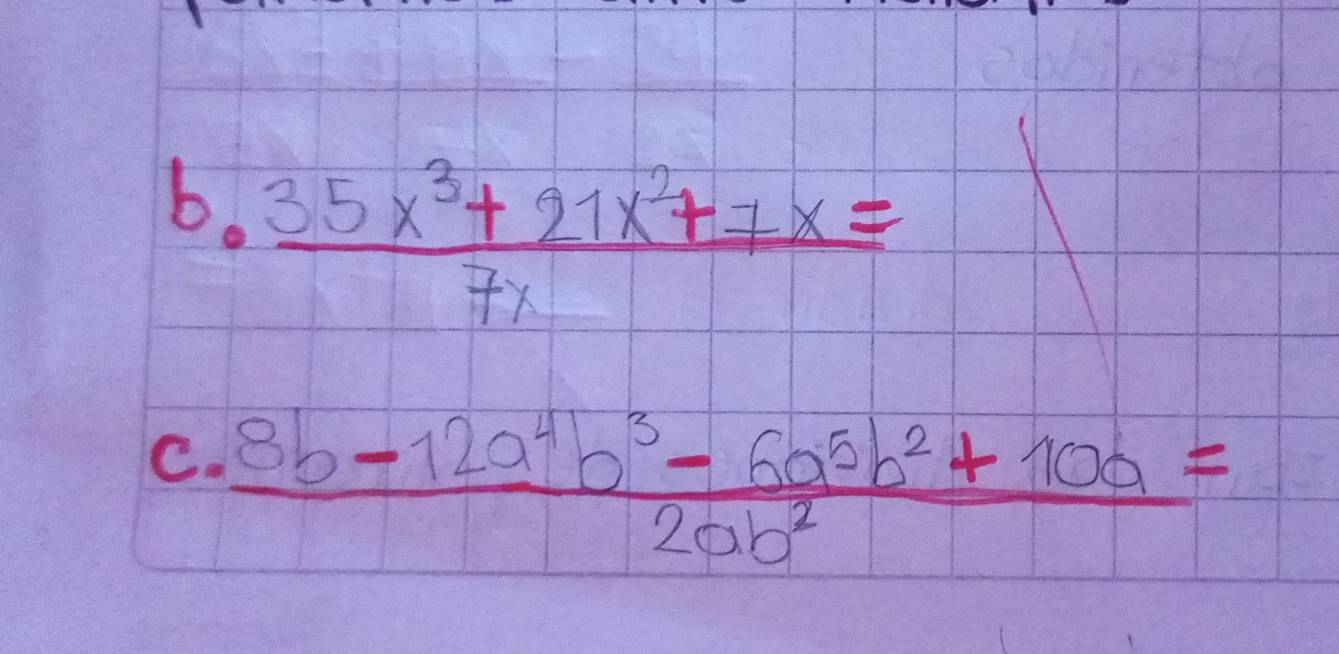 b. 35x³ + 21x² + 7x =
7x
c. 8b - 12a⁴b³ - 6a⁵b² + 10a =
2ab²